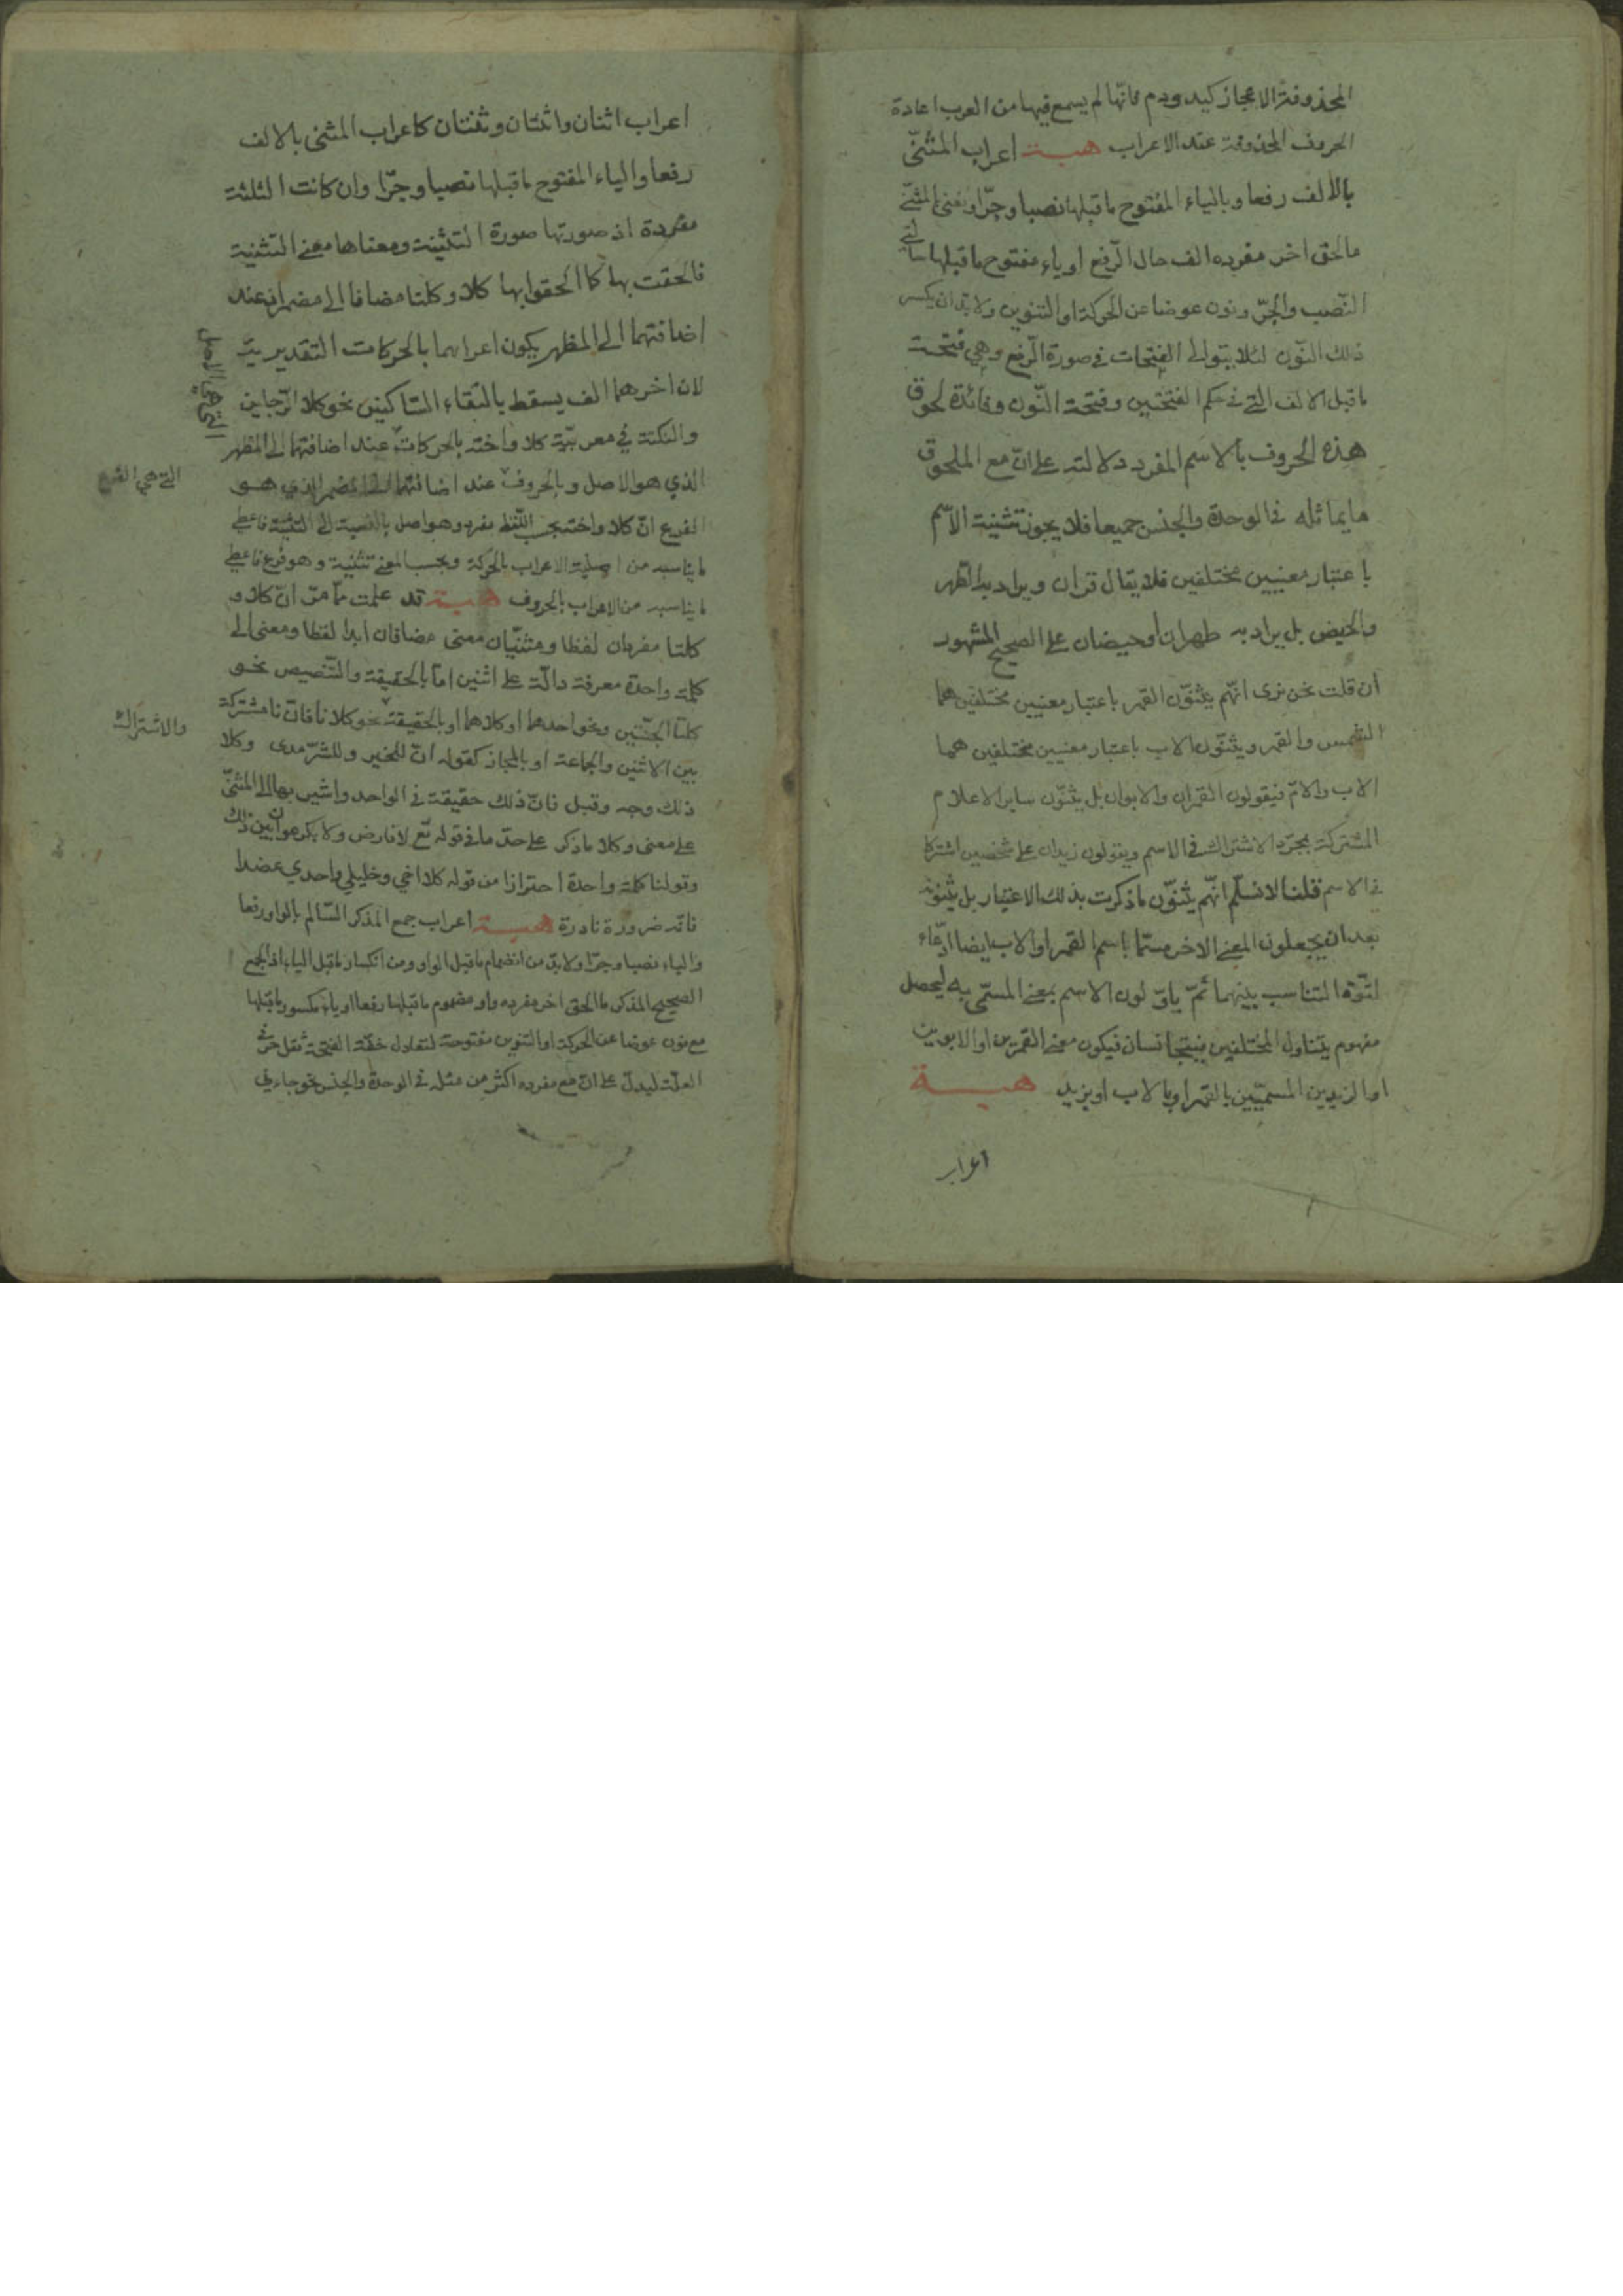 المحذوفة الاعجاز كيد ودم فانّها لم يسمع فيها من العرب اعادة
الحروف المحذوفة عند الاعراب هبـة اعراب المثنّى
بالالف رفعا وبالياء المفتوح ماقبلها نصبا وجرّا ونعنى بالمثنّى
مالحق اخر مفرده الف حال الرّفع او ياء مفتوح ماقبلها حالتى
النّصب والجرّ ونون عوضا عن الحركة او التنوين ولا بدّ ان يكسر
ذلك النّون لئلا يتوالى الفتحات فى صورة الرّفع وهى فتحة
ماقبل الالف التى فى حكم الفتحتين وفتحة النّون وفائدة لحوق
هذه الحروف بالاسم المفرد دلالته على انّ مع الملحوق
مايماثله فى الوحدة والجنس جميعا فلا يجوز تثنية الاسم
باعتبار معنيين مختلفين فلا يقال قرآن ويراد به الطّهر
والحيض بل يراد به طهران او حيضان على الصحيح المشهور
ان قلت نحن نرى انّهم يثنّون القمر باعتبار معنيين مختلفين هما
الشمس والقمر ويثنّون الاب باعتبار معنيين مختلفين هما
الاب والامّ فيقولون القمران والابوان بل يثنّون ساير الاعلام
المشتركة بمجرّد الاشتراك فى الاسم ويقولون زيدان على شخصين اشتركا
فى الاسم قلنا لا نسلّم انّهم يثنّون ماذكرت بذلك الاعتبار بل يثنّونه
بعد ان يجعلون المعنى الاخر مسمّا باسم القمر او الاب ايضا ادّعاء
لقوّة التناسب بينهما ثمّ ياوّلون الاسم بمعنى المسمّى به ليحصل
مفهوم يتناول المختلفين فيتجانسان فيكون معنى القمرين او الابوين
او الزيدين المسمّيين بالقمر او بالاب او بزيد هبـة
اعراب
اعراب اثنان واثنتان وثنتان كاعراب المثنى بالالف
رفعا والياء المفتوح ماقبلها نصبا وجرّا وان كانت الثلثة
مفردة اذ صورتها صورة التثنية ومعناها معنى التثنية
فالحقت بها كما الحقوا بها كلا وكلتا مضافا الى مضمر اذ عند
اضافتهما الى المظهر يكون اعرابهما بالحركات التقديرية
لان اخرهما الف يسقط بالتقاء السّاكنين نحو كلا الرّجلين
والنكتة فى معربيّة كلا واخته بالحركات عند اضافتهما الى المظهر
التى هى الاصل
الذي هو الاصل وبالحروف عند اضافتهما الى المضمر الذي هو
التى هى الفرع
الفرع انّ كلا واخته بحسب اللّفظ مفرد وهو اصل بالنسبة الى التثنية فاعطى
مايناسبه من اصلية الاعراب بالحركة وبحسب المعنى تثنية وهو فرع فاعطى
مايناسبه من الاعراب بالحروف هبـة قد علمت ممّا مرّ انّ كلا و
كلتا مفردان لفظا ومثنّيان معنى مضافان ابدا لفظا ومعنى الى
كلمة واحدة معرفة دالّة على اثنين امّا بالحقيقة والتّنصيص نحو
كلتا الجنّتين ونحو احدهما او كلاهما او بالحقيقة نحو كلانا فانّ نا مشتركة
والاشتراك
بين الاثنين والجماعة او بالمجاز كقوله انّ للخير وللشّر مدى وكلا
ذلك وجه وقبل فانّ ذلك حقيقة فى الواحد واشير بها الى المثنّى
على معنى وكلا ماذكر على حدّ ما فى قوله تع لا فارض ولا بكر عوان بين ذلك
وقولنا كلمة واحدة احترازا من قوله كلا اخي وخليلي واجدي عضدا
فانّه ضرورة نادرة هبـة اعراب جمع المذكر السّالم بالواو رفعا
والياء نصبا وجرّا ولا بدّ من انضمام ماقبل الواو ومن انكسار ماقبل الياء اذ الجمع
الصحيح المذكر ما الحق اخر مفرده واو مضموم ماقبلها رفعا او ياء مكسور ماقبلها
مع نون عوضا عن الحركة او التنوين مفتوحة لتعادل خفّة الفتحة ثقل حرفى
العلّة ليدلّ على انّ مع مفرده اكثر من مثله فى الوحدة والجنس نحو جاءني